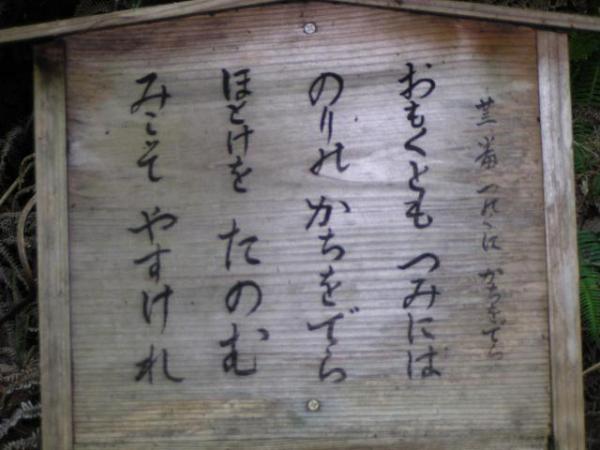 廿三番 つのくに かちをでら
おもくとも つみには
のりの かちをでら
ほとけを たのむ
みこそ やすけれ